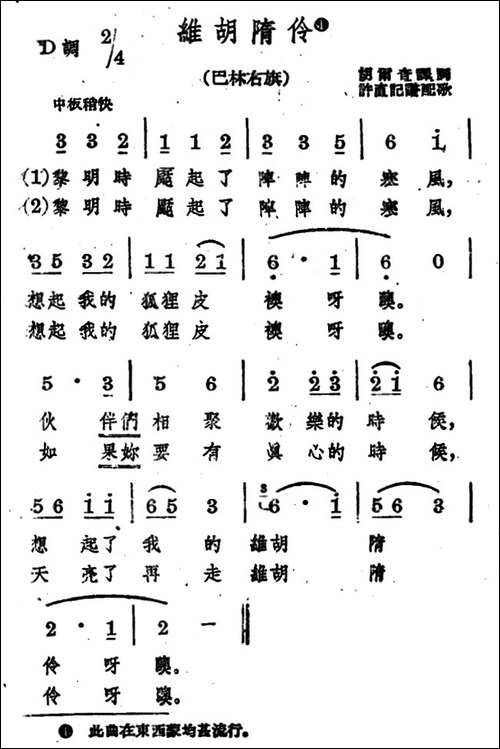 維胡隋伶❶
D調 2/4
(巴林右旗)
許直記譜配歌
中板稍快
3 3 2 | 1 1 2 | 3 3 5 | 6 i |
(1)黎明時颳起了陣陣的寒風,
(2)黎明時颳起了陣陣的寒風,
35 32 | 11 21 | 6 · 1 | 6 0 |
想起我的狐狸皮襖呀噢。
想起我的狐狸皮襖呀噢。
5 · 3 | 5 6 | 2 23 | 21 6 |
伙伴們相聚歡樂的時候,
如果妳要有真心的時候,
56 ii | 65 3 | 6 · i | 56 3 |
想起了我的維胡隋
天亮了再走維胡隋
2 · 1 | 2 — ‖
伶呀噢。
伶呀噢。
❶ 此曲在東西蒙均甚流行。